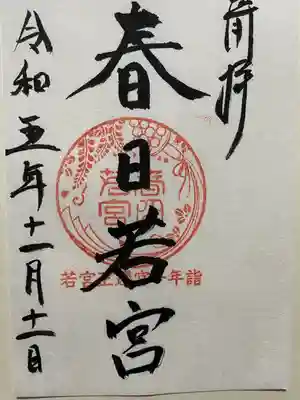 奉拝
春日若宮
令和五年十一月十一日
春日
若宮
若宮正遷宮 年詣